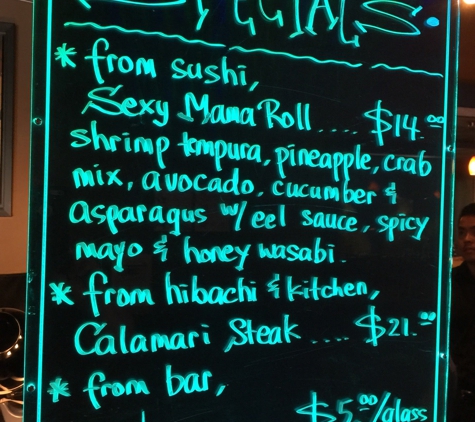 SPECIALS.
* from sushi,
Sexy Mama Roll .... $14.00
shrimp tempura, pineapple, crab
mix, avocado, cucumber &
asparagus w/ eel sauce, spicy
mayo & honey wasabi.
* from hibachi & kitchen,
Calamari Steak .... $21.00
* from bar,
$5.00/glass